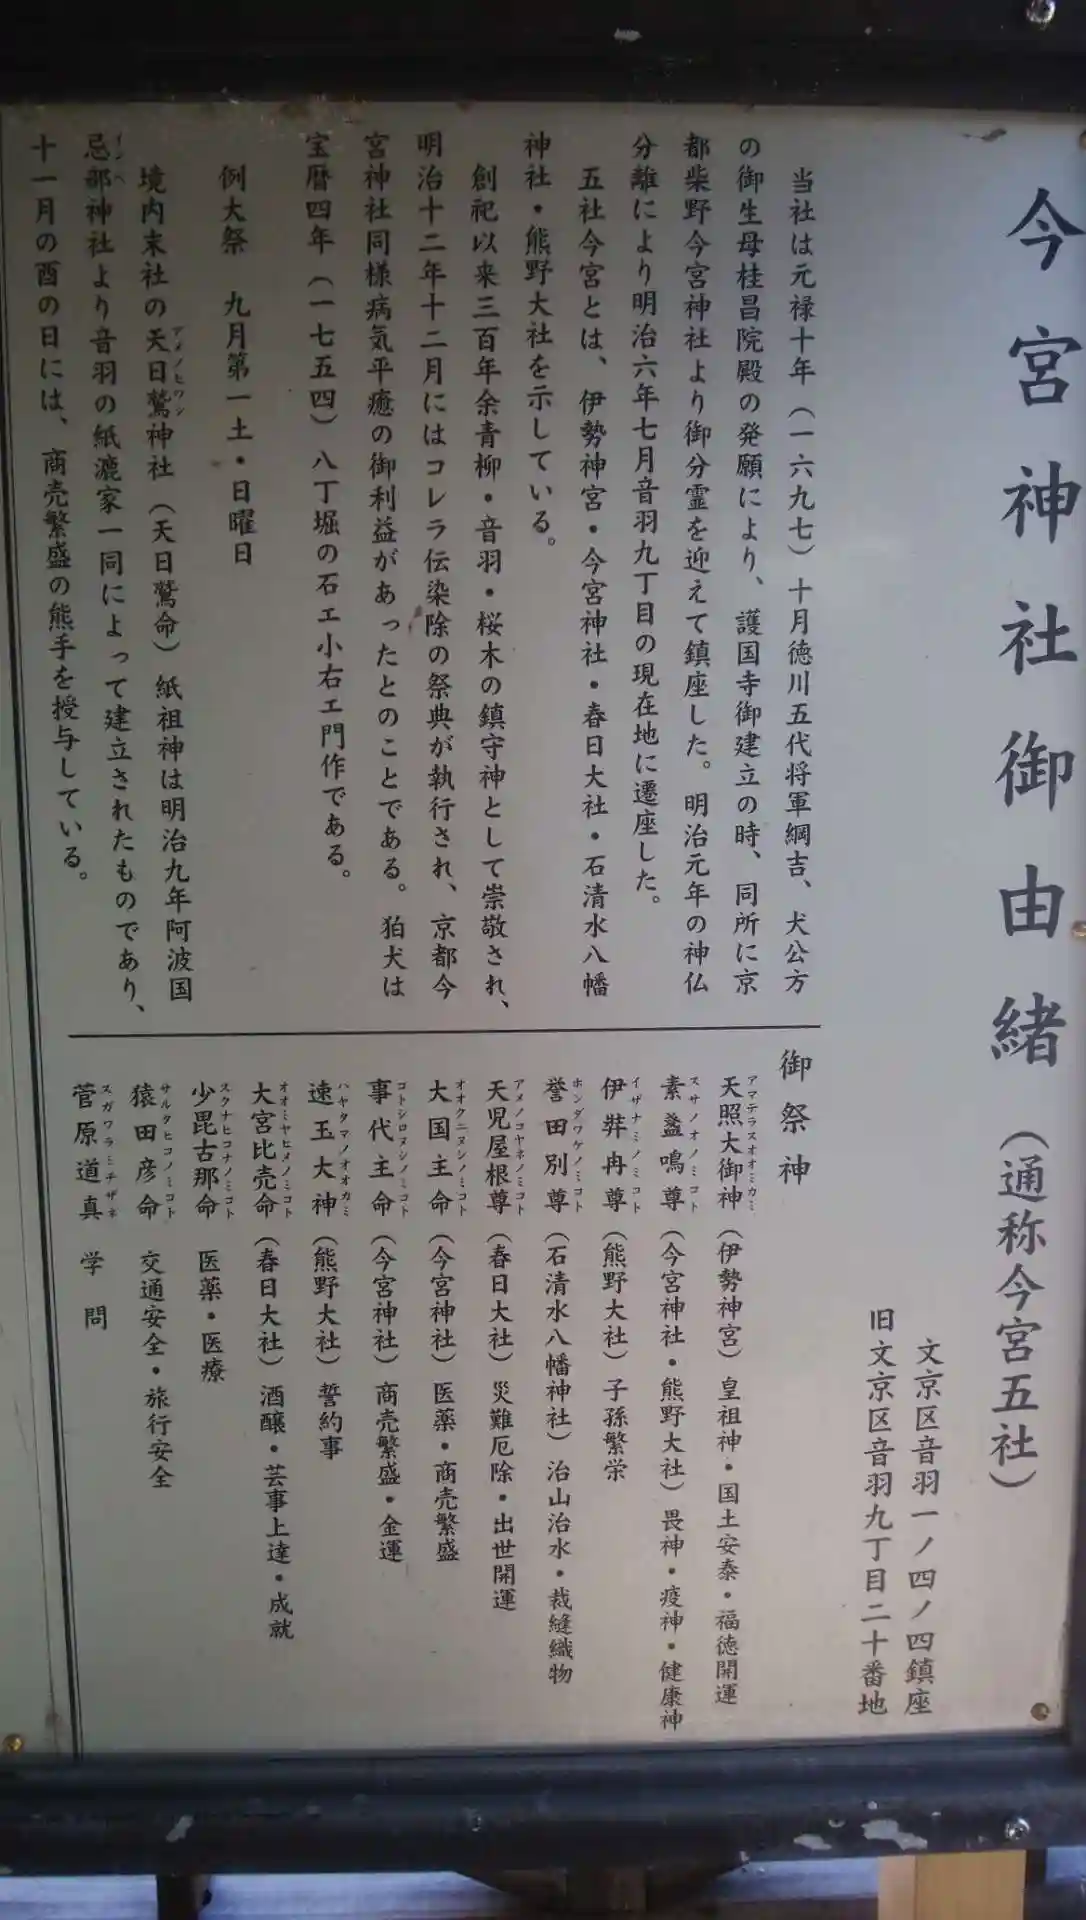 今宮神社御由緒（通称今宮五社）
文京区音羽一ノ四ノ四鎮座
旧文京区音羽九丁目二十番地
当社は元禄十年（一六九七）十月徳川五代将軍綱吉、犬公方
の御生母桂昌院殿の発願により、護国寺御建立の時、同所に京
都柴野今宮神社より御分霊を迎えて鎮座した。明治元年の神仏
分離により明治六年七月音羽九丁目の現在地に遷座した。
五社今宮とは、伊勢神宮・今宮神社・春日大社・石清水八幡
神社・熊野大社を示している。
創祀以来三百年余青柳・音羽・桜木の鎮守神として崇敬され、
明治十二年十二月にはコレラ伝染除の祭典が執行され、京都今
宮神社同様病気平癒の御利益があったとのことである。狛犬は
宝暦四年（一七五四）八丁堀の石工小右エ門作である。
例大祭　九月第一土・日曜日
境内末社の天日鷲神社（天日鷲命）紙祖神は明治九年阿波国
アメノヒワシ
忌部神社より音羽の紙漉家一同によって建立されたものであり、
インベ
十一月の酉の日には、商売繁盛の熊手を授与している。
御祭神
天照大御神（伊勢神宮）皇祖神・国土安泰・福徳開運
アマテラスオオミカミ
素盞鳴尊（今宮神社・熊野大社）畏神・疫神・健康神
スサノオノミコト
伊弉冉尊（熊野大社）子孫繁栄
イザナミノミコト
誉田別尊（石清水八幡神社）治山治水・裁縫織物
ホンダワケノミコト
天児屋根尊（春日大社）災難厄除・出世開運
アメノコヤネノミコト
大国主命（今宮神社）医薬・商売繁盛
オオクニヌシノミコト
事代主命（今宮神社）商売繁盛・金運
コトシロヌシノミコト
速玉大神（熊野大社）誓約事
ハヤタマノオオカミ
大宮比売命（春日大社）酒醸・芸事上達・成就
オオミヤヒメノミコト
少毘古那命　医薬・医療
スクナヒコナノミコト
猿田彦命　交通安全・旅行安全
サルタヒコノミコト
菅原道真　学問
スガワラミチザネ